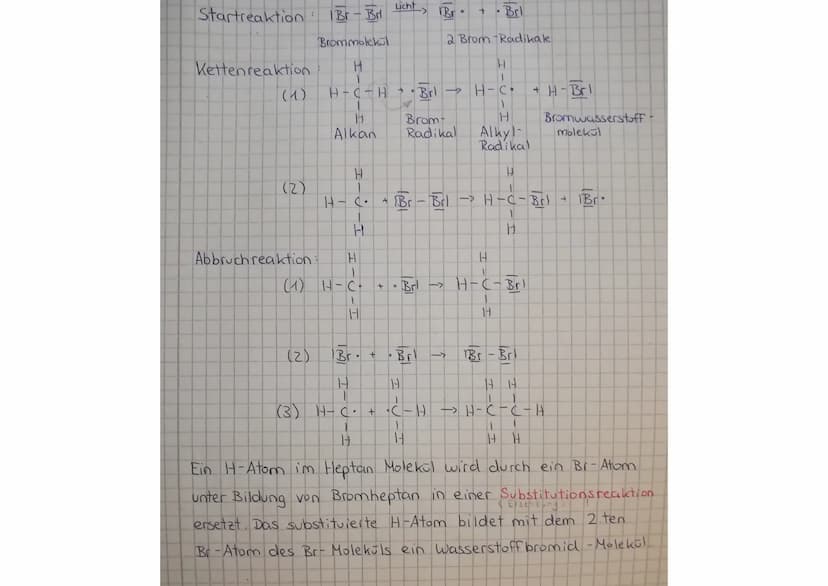 Startreaktion: |Br – Br| Licht → |Br• + •Br|
Brommolekül 2 Brom-Radikale
Kettenreaktion: H H
(1) H-C-H + •Br| → H-C• + H-Br|
H H
Alkan Brom-Radikal Alkyl-Radikal Bromwasserstoff-molekül
H H
(2) H-C• + |Br – Br| → H-C-Br| + |Br•
H H
Abbruchreaktion: H H
(1) H-C• + •Br| → H-C-Br|
H H
(2) |Br• + •Br| → |Br – Br|
H H H H
(3) H-C• + •C-H → H-C-C-H
H H H H
Ein H-Atom im Heptan Molekül wird durch ein Br-Atom
unter Bildung von Bromheptan in einer Substitutionsreaktion
ersetzt. Das substituierte H-Atom bildet mit dem 2ten
Br-Atom des Br-Moleküls ein Wasserstoffbromid-Molekül.